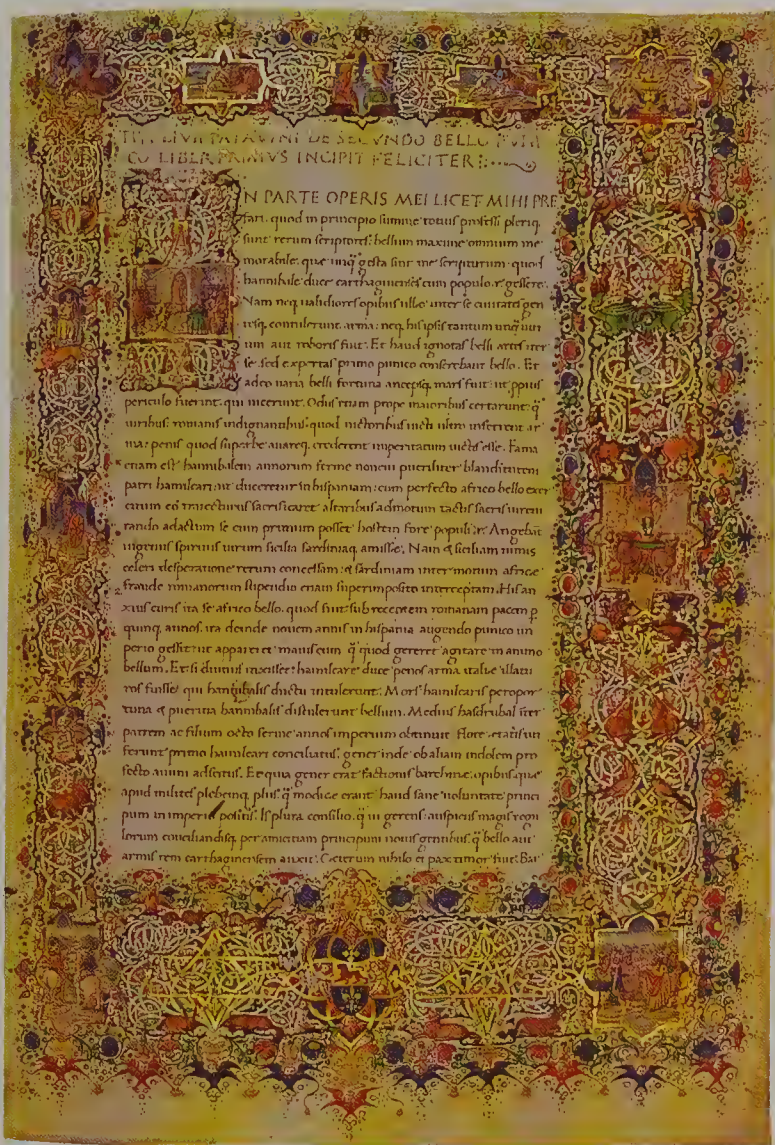 TITI LIVII PATAVINI DE SECVNDO BELLO PVNI
CO LIBER PRIMVS INCIPIT FELICITER:
IN PARTE OPERIS MEI LICET MIHI PRE
fari. quod in principio summe totius professi pleriq.
sunt rerum scriptores: bellum maxime omnium me
morabile. que unq̄ gesta sint me scripturum. quod
hannibale duce carthaginenses cum populo .r. gessere.
Nam neq. validiores opibus ulle inter se civitates gen
tesq. contulerunt arma: neq. his ipsis tantum unq̄ viri
um aut roboris fuit. Et haud ignotas belli artes iter
se. sed expertas primo punico conserebant bello. Et
adeo varia belli fortuna ancepsq. mars fuit: ut ppius
periculo fuerint. qui vicerunt. Odiis etiam prope maioribus certarunt: q̄
viribus. romanis indignantibus. quod victoribus victi ultro inferrent ar
ma: penis quod supbe avareq. crederent imperitatum victis esse. Fama
etiam est hannibalem annorum ferme novem pueriliter blandientem
patri hamilcari: ut duceretur in hispaniam: cum perfecto africo bello exer
citum eo traiecturus sacrificaret altaribus admotum tactis sacris iureiu
rando adactum se cum primum posset hostem fore populi .r. Angebat
ingentis spiritus virum sicilia sardiniaq. amisse. Nam & siciliam nimis
celeri desperatione rerum concessam: & sardiniam inter motum africe
fraude romanorum stipendio etiam superimposito interceptam. His an
xius curis ita se africo bello. quod fuit sub recentem romanam pacem p̄
quinq. annos. ita deinde novem annis in hispania augendo punico im
perio gessit: ut appareret maius eum q̄ quod gereret agitare in animo
bellum. Et si diutius vixisset: hamilcare duce penos arma italie illatu
ros fuisse. qui hannibalis ductu intulerunt. Mors hamilcaris peropor
tuna & pueritia hannibalis distulerunt bellum. Medius hasdrubal iter
patrem ac filium octo ferme annos imperium obtinuit flore etatis uti
ferunt primo hamilcari conciliatus. gener inde ob aliam indolem pro
fecto animi adscitus. Et quia gener erat factionis barchine. opibus que
apud milites plebemq. plus q̄ modice erant haud sane voluntate princi
pum in imperio positus. Is plura consilio. q̄ vi gerens. auspiciis magis regu
lorum conciliandisq. per amicitiam principum novis gentibus. q̄ bello aut
armis rem carthaginensem auxit. Ceterum nihilo ei pax tutior fuit. Bar